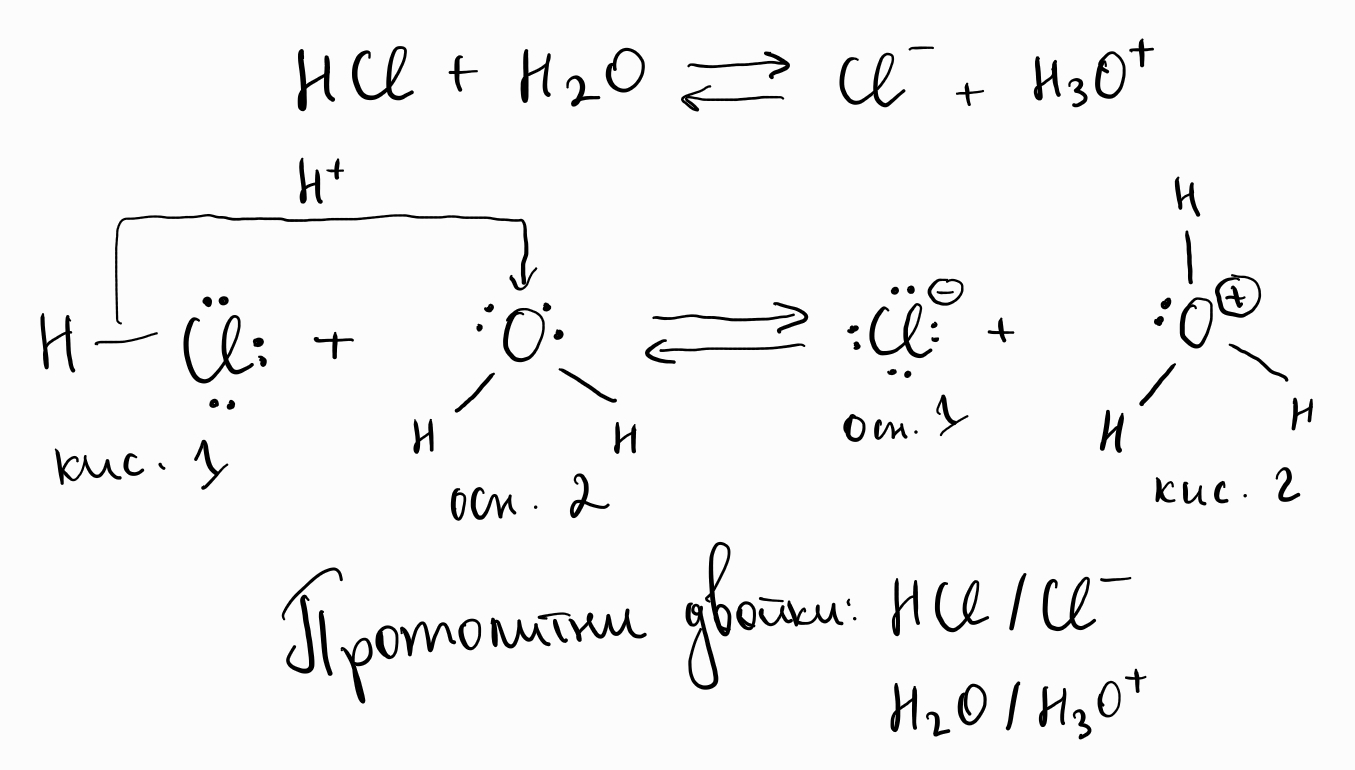 HCl + H₂O ⇌ Cl⁻ + H₃O⁺
H⁺
H
H — Cl + O ⇌ Cl ⊖ + O ⊕
H H H H
кис. 1 осн. 2 осн. 1 кис. 2
Протолитни двойки: HCl / Cl⁻
H₂O / H₃O⁺